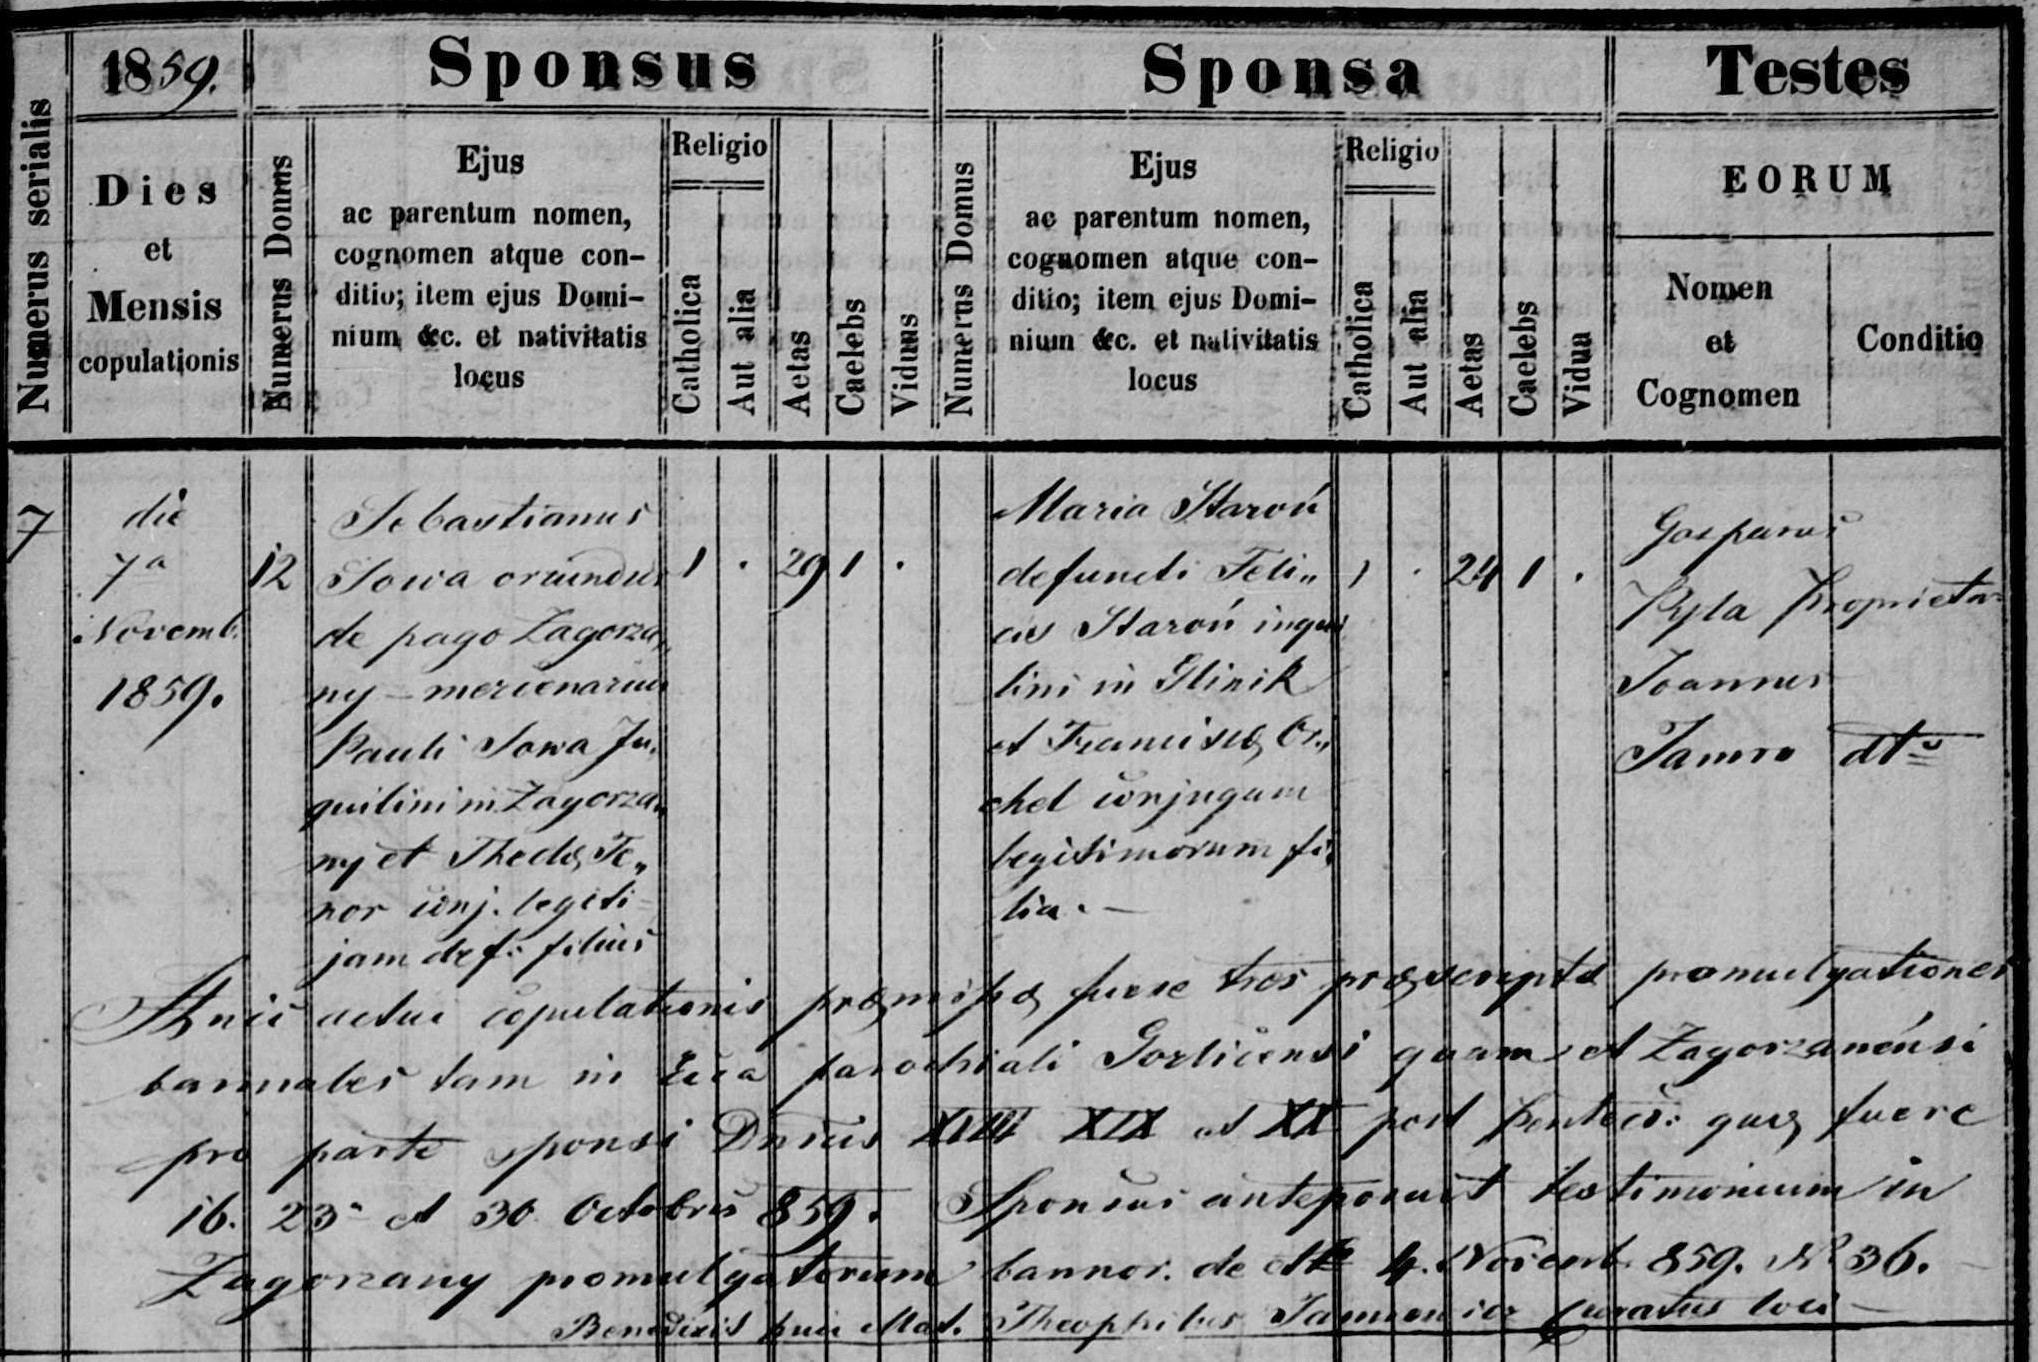 Numerus serialis
1859.
Dies
et
Mensis
copulationis
Sponsus
Numerus Domus
Ejus
ac parentum nomen,
cognomen atque con-
ditio; item ejus Domi-
nium &c. et nativitatis
locus
Religio
Catholica
Aut alia
Aetas
Caelebs
Viduus
Sponsa
Numerus Domus
Ejus
ac parentum nomen,
cognomen atque con-
ditio; item ejus Domi-
nium &c. et nativitatis
locus
Religio
Catholica
Aut alia
Aetas
Caelebs
Vidua
Testes
EORUM
Nomen
et
Cognomen
Conditio
7
die
7a
Novemb.
1859.
12
Sebastianus
Sowa oriundus
de pago Zagorza„
ny – mercenarius
Pauli Sowa In„
quilini in Zagorza„
ny et Theclæ Te„
nor conj. legiti=
jam def: filius
1 . 29 1 .
Maria Staroń
defuncti Feli„
cis Staroń inqui
lini in Glinik
et Franciscæ Or„
chel conjugum
legitimorum fi„
lia. —
1 . 24 1 .
Gasparus
Pyla Proprietar
Joannes
Jamro dto
Huic actui copulationis præmissæ fuere tres præscriptæ promulgationes
bannales tam in Ecca parochiali Gorlicensi quam et Zagorzanénsi
pro parte sponsi Dnicis XVIII XIX et XX post Pentec: quæ fuere
16. 23. et 30 Octobris 859. Sponsus anteposuit testimonium in
Zagorzany promulgatorum bannor. de dto 4. Novemb. 859. No 36.
Benedixit huic Mat. Theophilus Curatus loci —